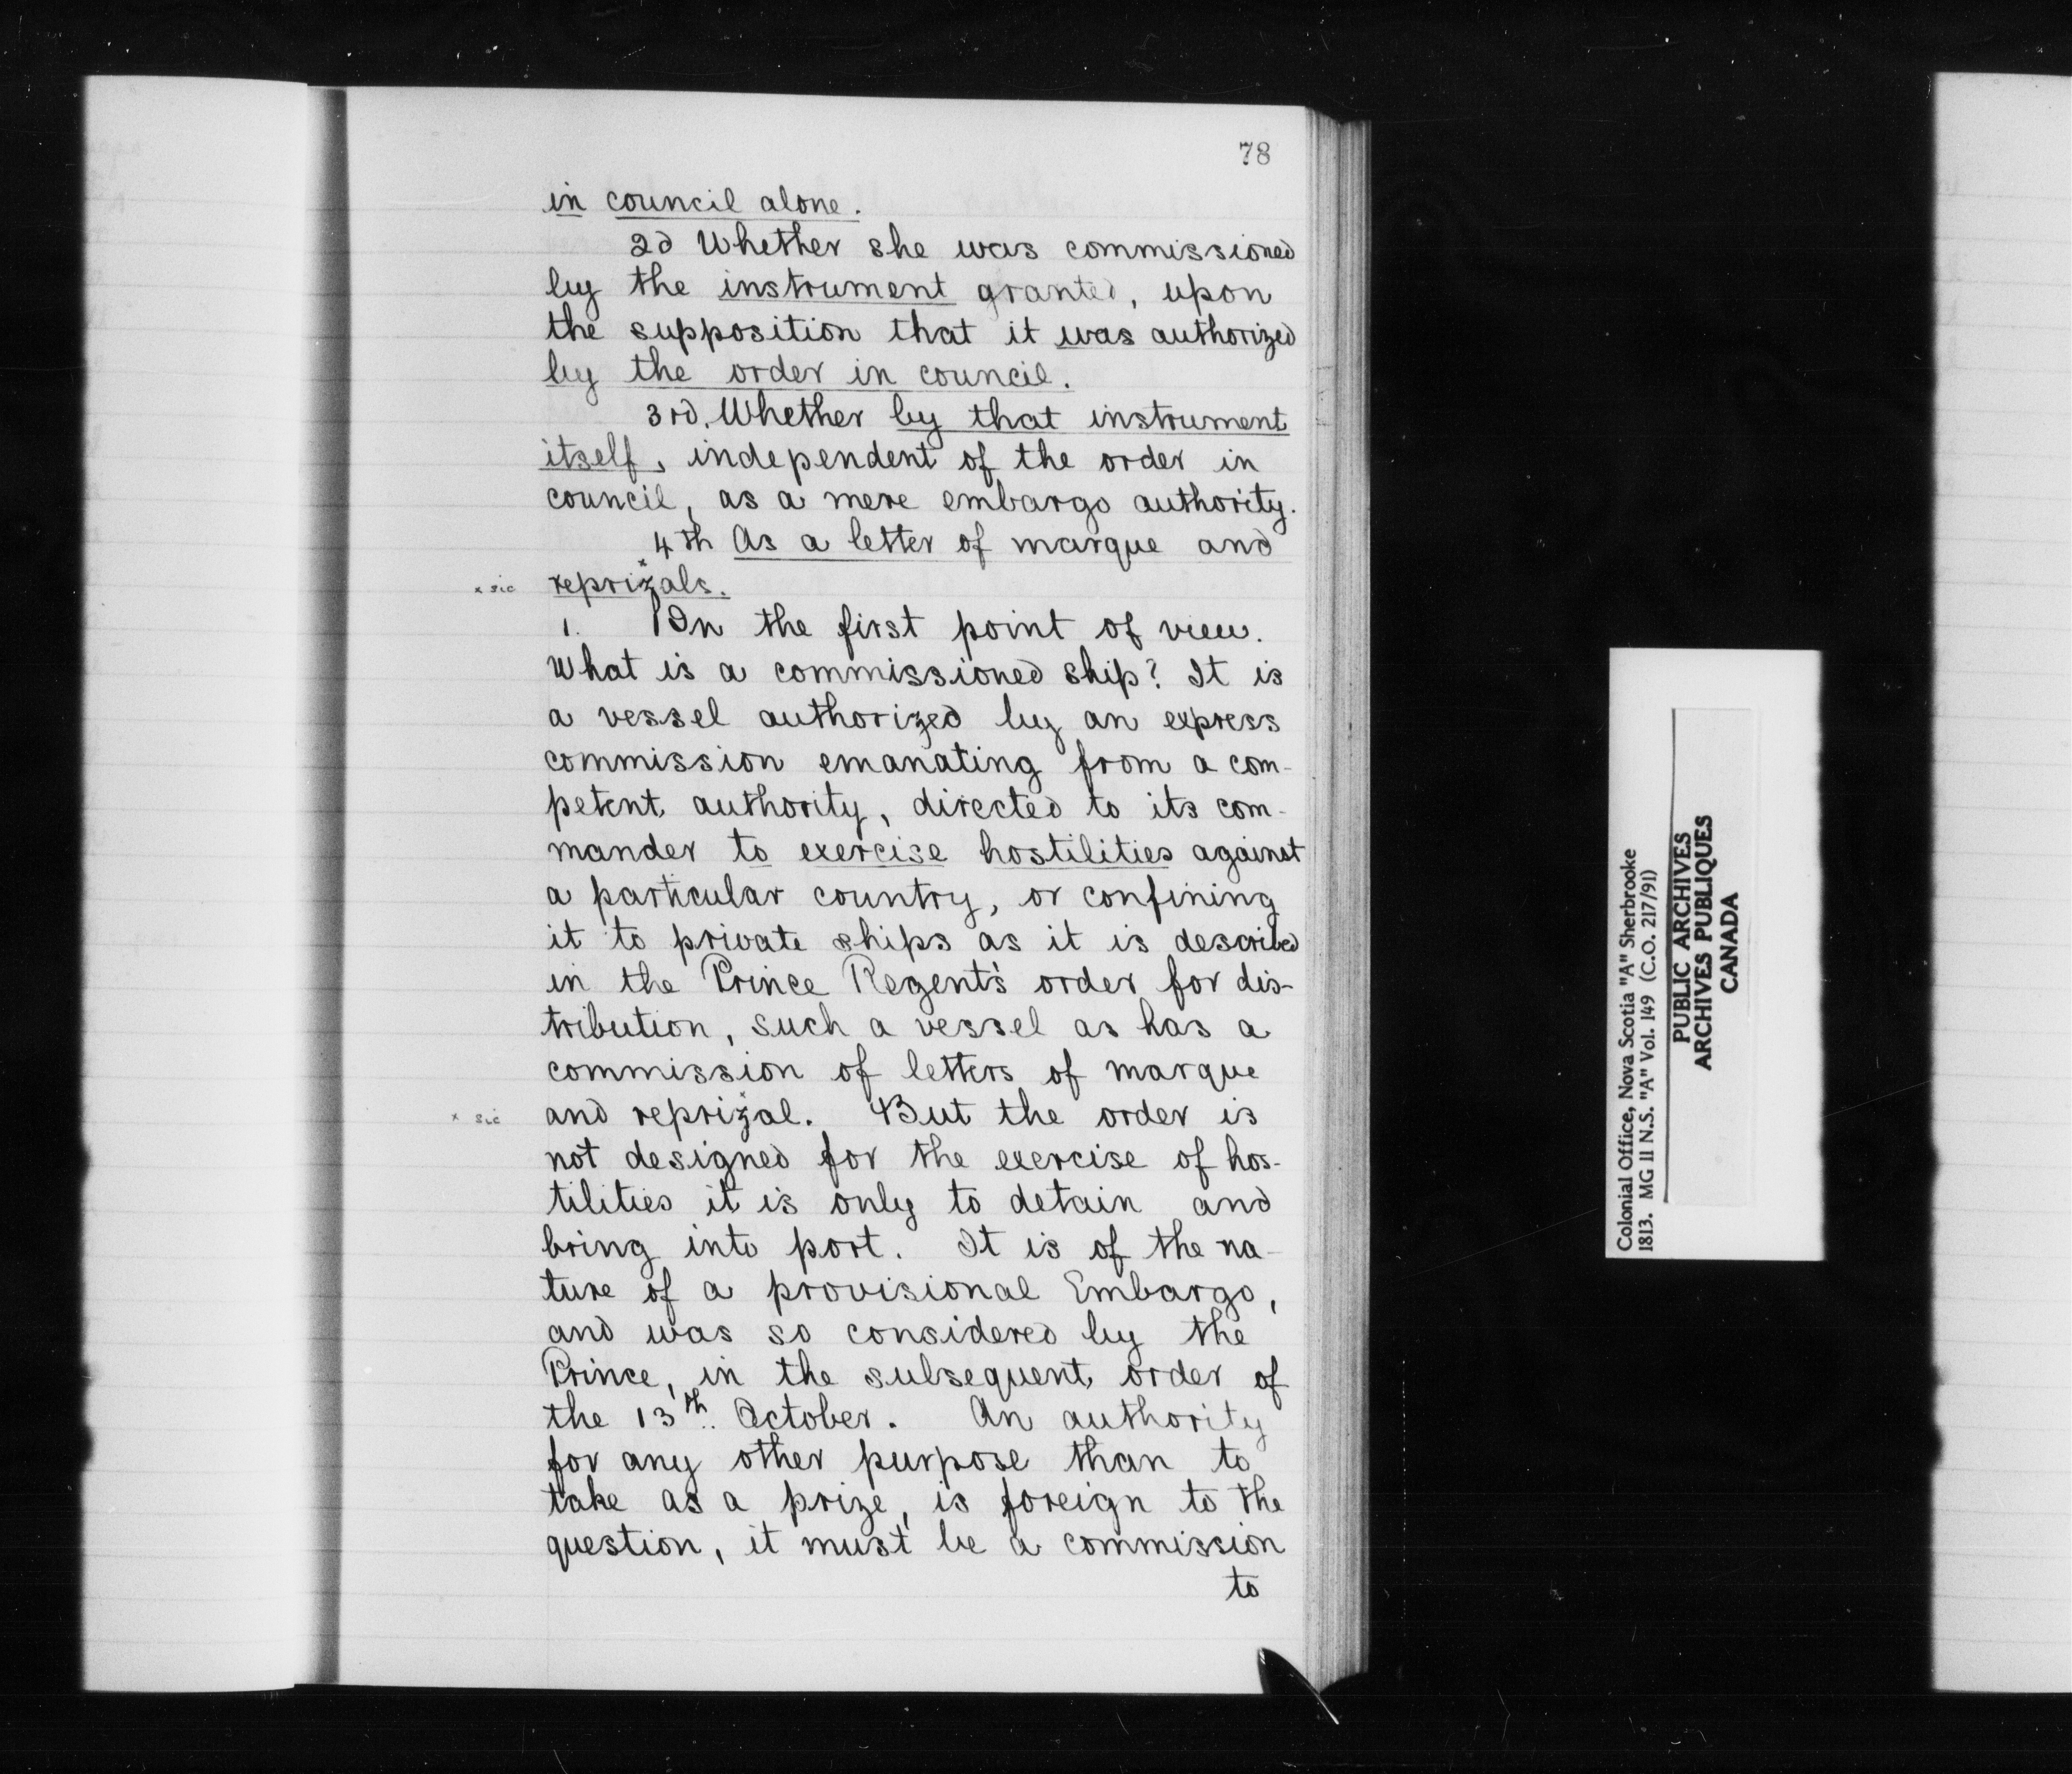 78
in council alone.
2d Whether she was commissioned
by the instrument granted, upon
the supposition that it was authorized
by the order in council.
3rd. Whether by that instrument
itself, independent of the order in
council, as a mere embargo authority.
4th As a letter of marque and
x sic reprizals.
1. In the first point of view.
What is a commissioned ship? It is
a vessel authorized by an express
commission emanating from a com-
petent authority, directed to its com-
mander to exercise hostilities against
a particular country, or confining
it to private ships as it is described
in the Prince Regent's order for dis-
tribution, such a vessel as has a
commission of letters of marque
x sic and reprizal. But the order is
not designed for the exercise of hos-
tilities it is only to detain and
bring into port. It is of the na-
ture of a provisional Embargo,
and was so considered by the
Prince, in the subsequent order of
the 13th October. An authority
for any other purpose than to
take as a prize, is foreign to the
question, it must be a commission
to
Colonial Office, Nova Scotia "A" Sherbrooke
1813. MG 11 N.S. "A" Vol. 149 (C.O. 217/91)
PUBLIC ARCHIVES
ARCHIVES PUBLIQUES
CANADA